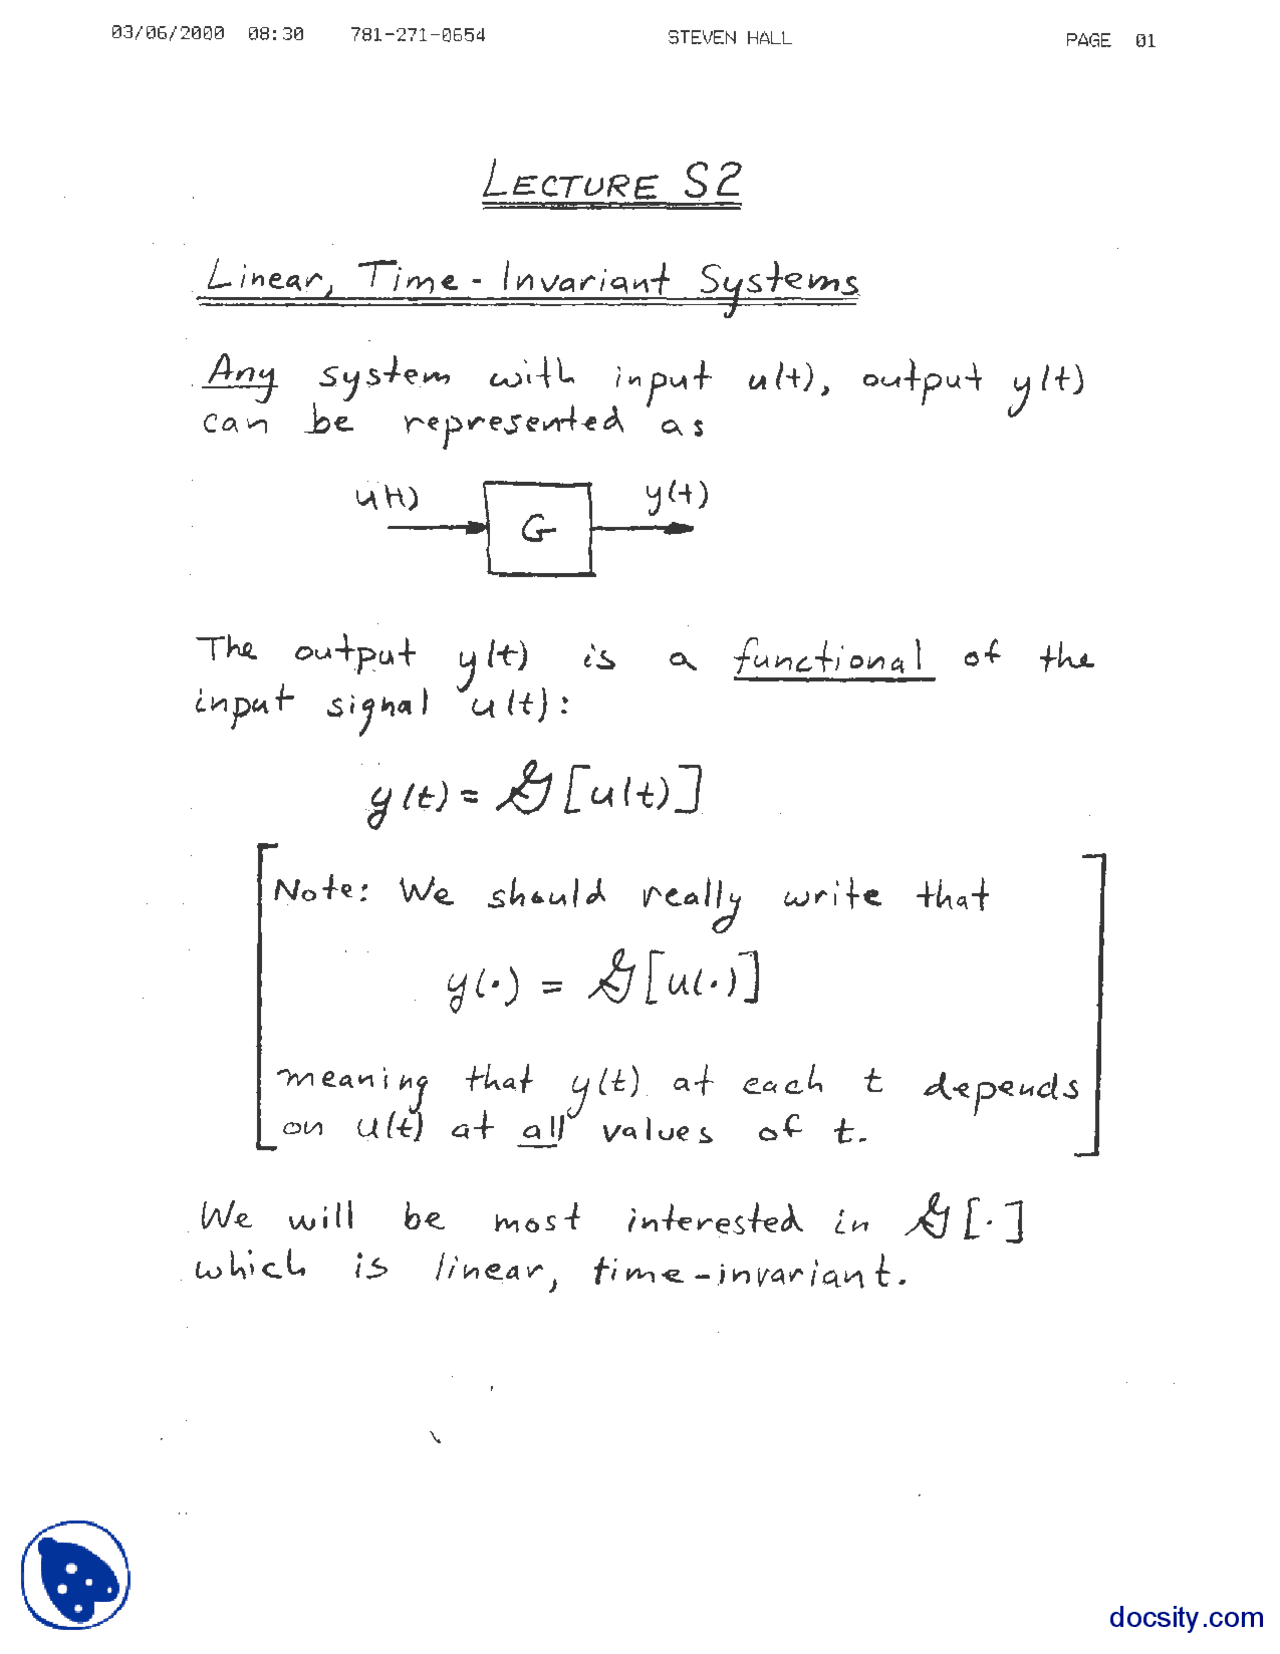 03/06/2000 08:30 781-271-0654 STEVEN HALL PAGE 01
LECTURE S2
Linear, Time-Invariant Systems
Any system with input u(t), output y(t)
can be represented as
u(t) G y(t)
The output y(t) is a functional of the
input signal u(t):
y(t) = 𝒢[u(t)]
Note: We should really write that
y(·) = 𝒢[u(·)]
meaning that y(t) at each t depends
on u(t) at all values of t.
We will be most interested in 𝒢[·]
which is linear, time-invariant.
docsity.com